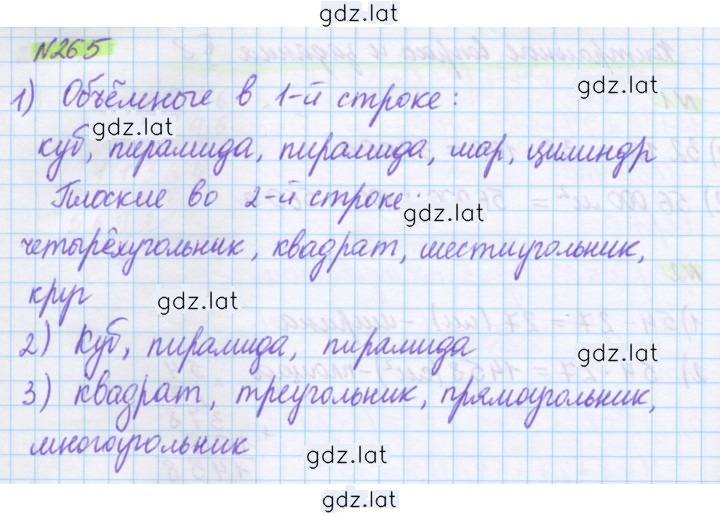 gdz.lat
№265
1) Объёмные в 1-й строке:
gdz.lat
gdz.lat
куб, пирамида, пирамида, шар, цилиндр
Плоские во 2-й строке:
gdz.lat
четырёхугольник, квадрат, шестиугольник,
круг
gdz.lat
2) Куб, пирамида, пирамида
gdz.lat
3) квадрат, треугольник, прямоугольник,
многоугольник
gdz.lat
gdz.lat